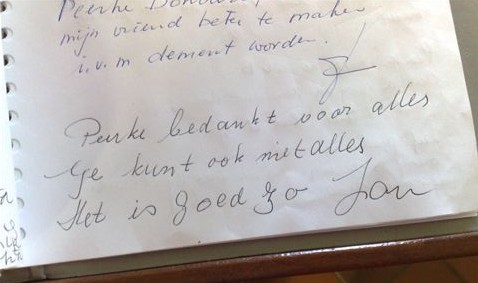 Peerke Donders
mijn vriend beter te maken
i.v.m dement worden.
Peerke bedankt voor alles
Ge kunt ook niet alles
Het is goed zo Jan